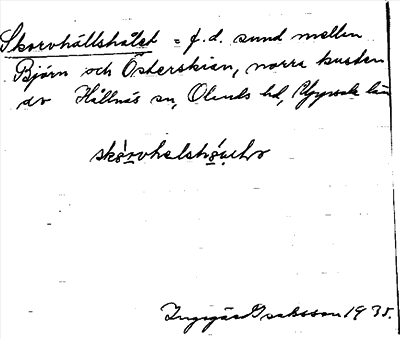 Skorvhällshålet = f.d. sund mellan
Björn och Österskian, norra kusten
av Hållnäs sn, Olands hd, Uppsala län
Ingegärd Isaksson 1935.